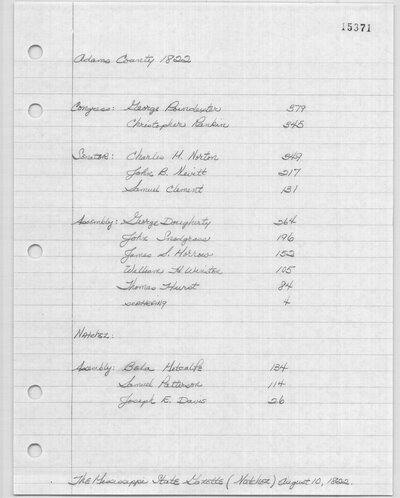 15371
Adams County 1822
Congress: George Poindexter 379
Christopher Rankin 345
Senator: Charles H. Norton 349
John B. Nevitt 217
Samuel Clement 131
Assembly: George Dougherty 264
John Snodgrass 196
James S. 152
William H. Winston 105
Thomas Hurst 84
SCATTERING 4
NATCHEZ:
Assembly: Bela Metcalfe 184
Samuel Patterson 114
Joseph E. Davis 26
The Mississippi State Gazette (Natchez) August 10, 1822.